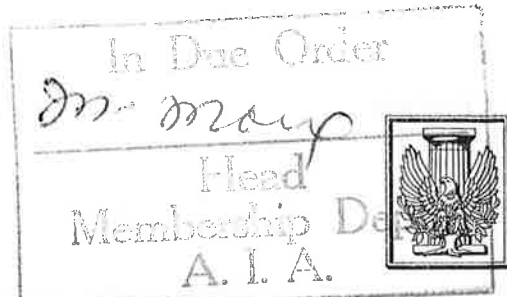 In Due Order
Head
Membership Dep
A. I. A.